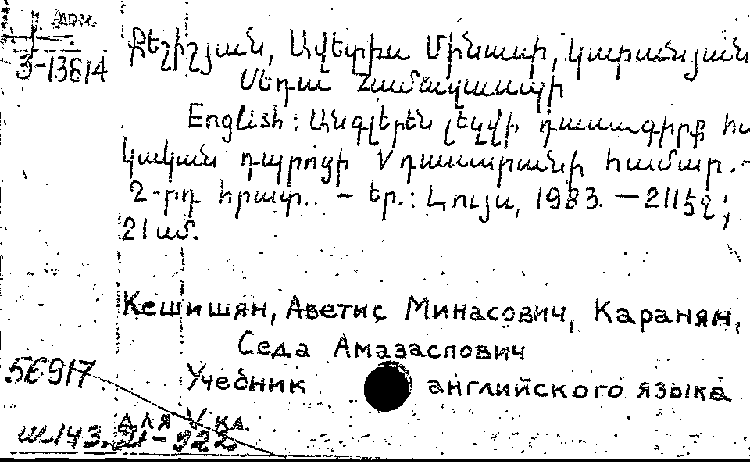 3-13614
Քեշիշյան, Ավետիս Մինասի, Կարանյան
Սեդա Համազասպի
English: Անգլերեն լեզվի դասագիրք հա
կական դպրոցի V դասարանի համար.-
2-րդ հրատ. - Եր.: Լույս, 1983. - 211 էջ;
21 սմ.
Кешишян, Аветис Минасович, Каранян,
Седа Амазаспович
56917
Учебник английского языка
для V кл.